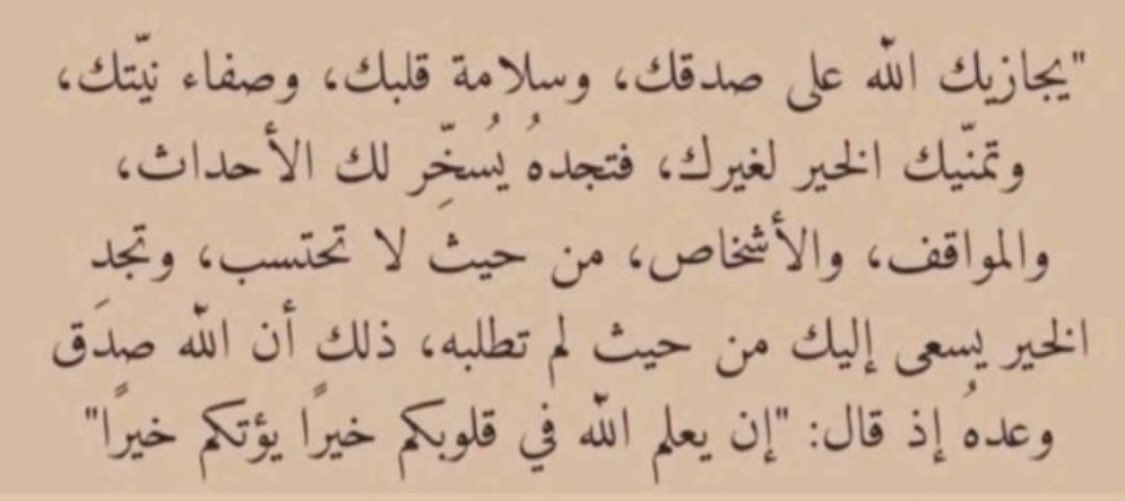 "يجازيك الله على صدقك، وسلامة قلبك، وصفاء نيّتك،
وتمنّيك الخير لغيرك، فتجدهُ يُسخِّر لك الأحداث،
والمواقف، والأشخاص، من حيث لا تحتسب، وتجدِ
الخير يسعى إليك من حيث لم تطلبه، ذلك أن الله صدَق
وعدهُ إذ قال: "إن يعلم الله في قلوبكم خيرًا يؤتكم خيرًا"